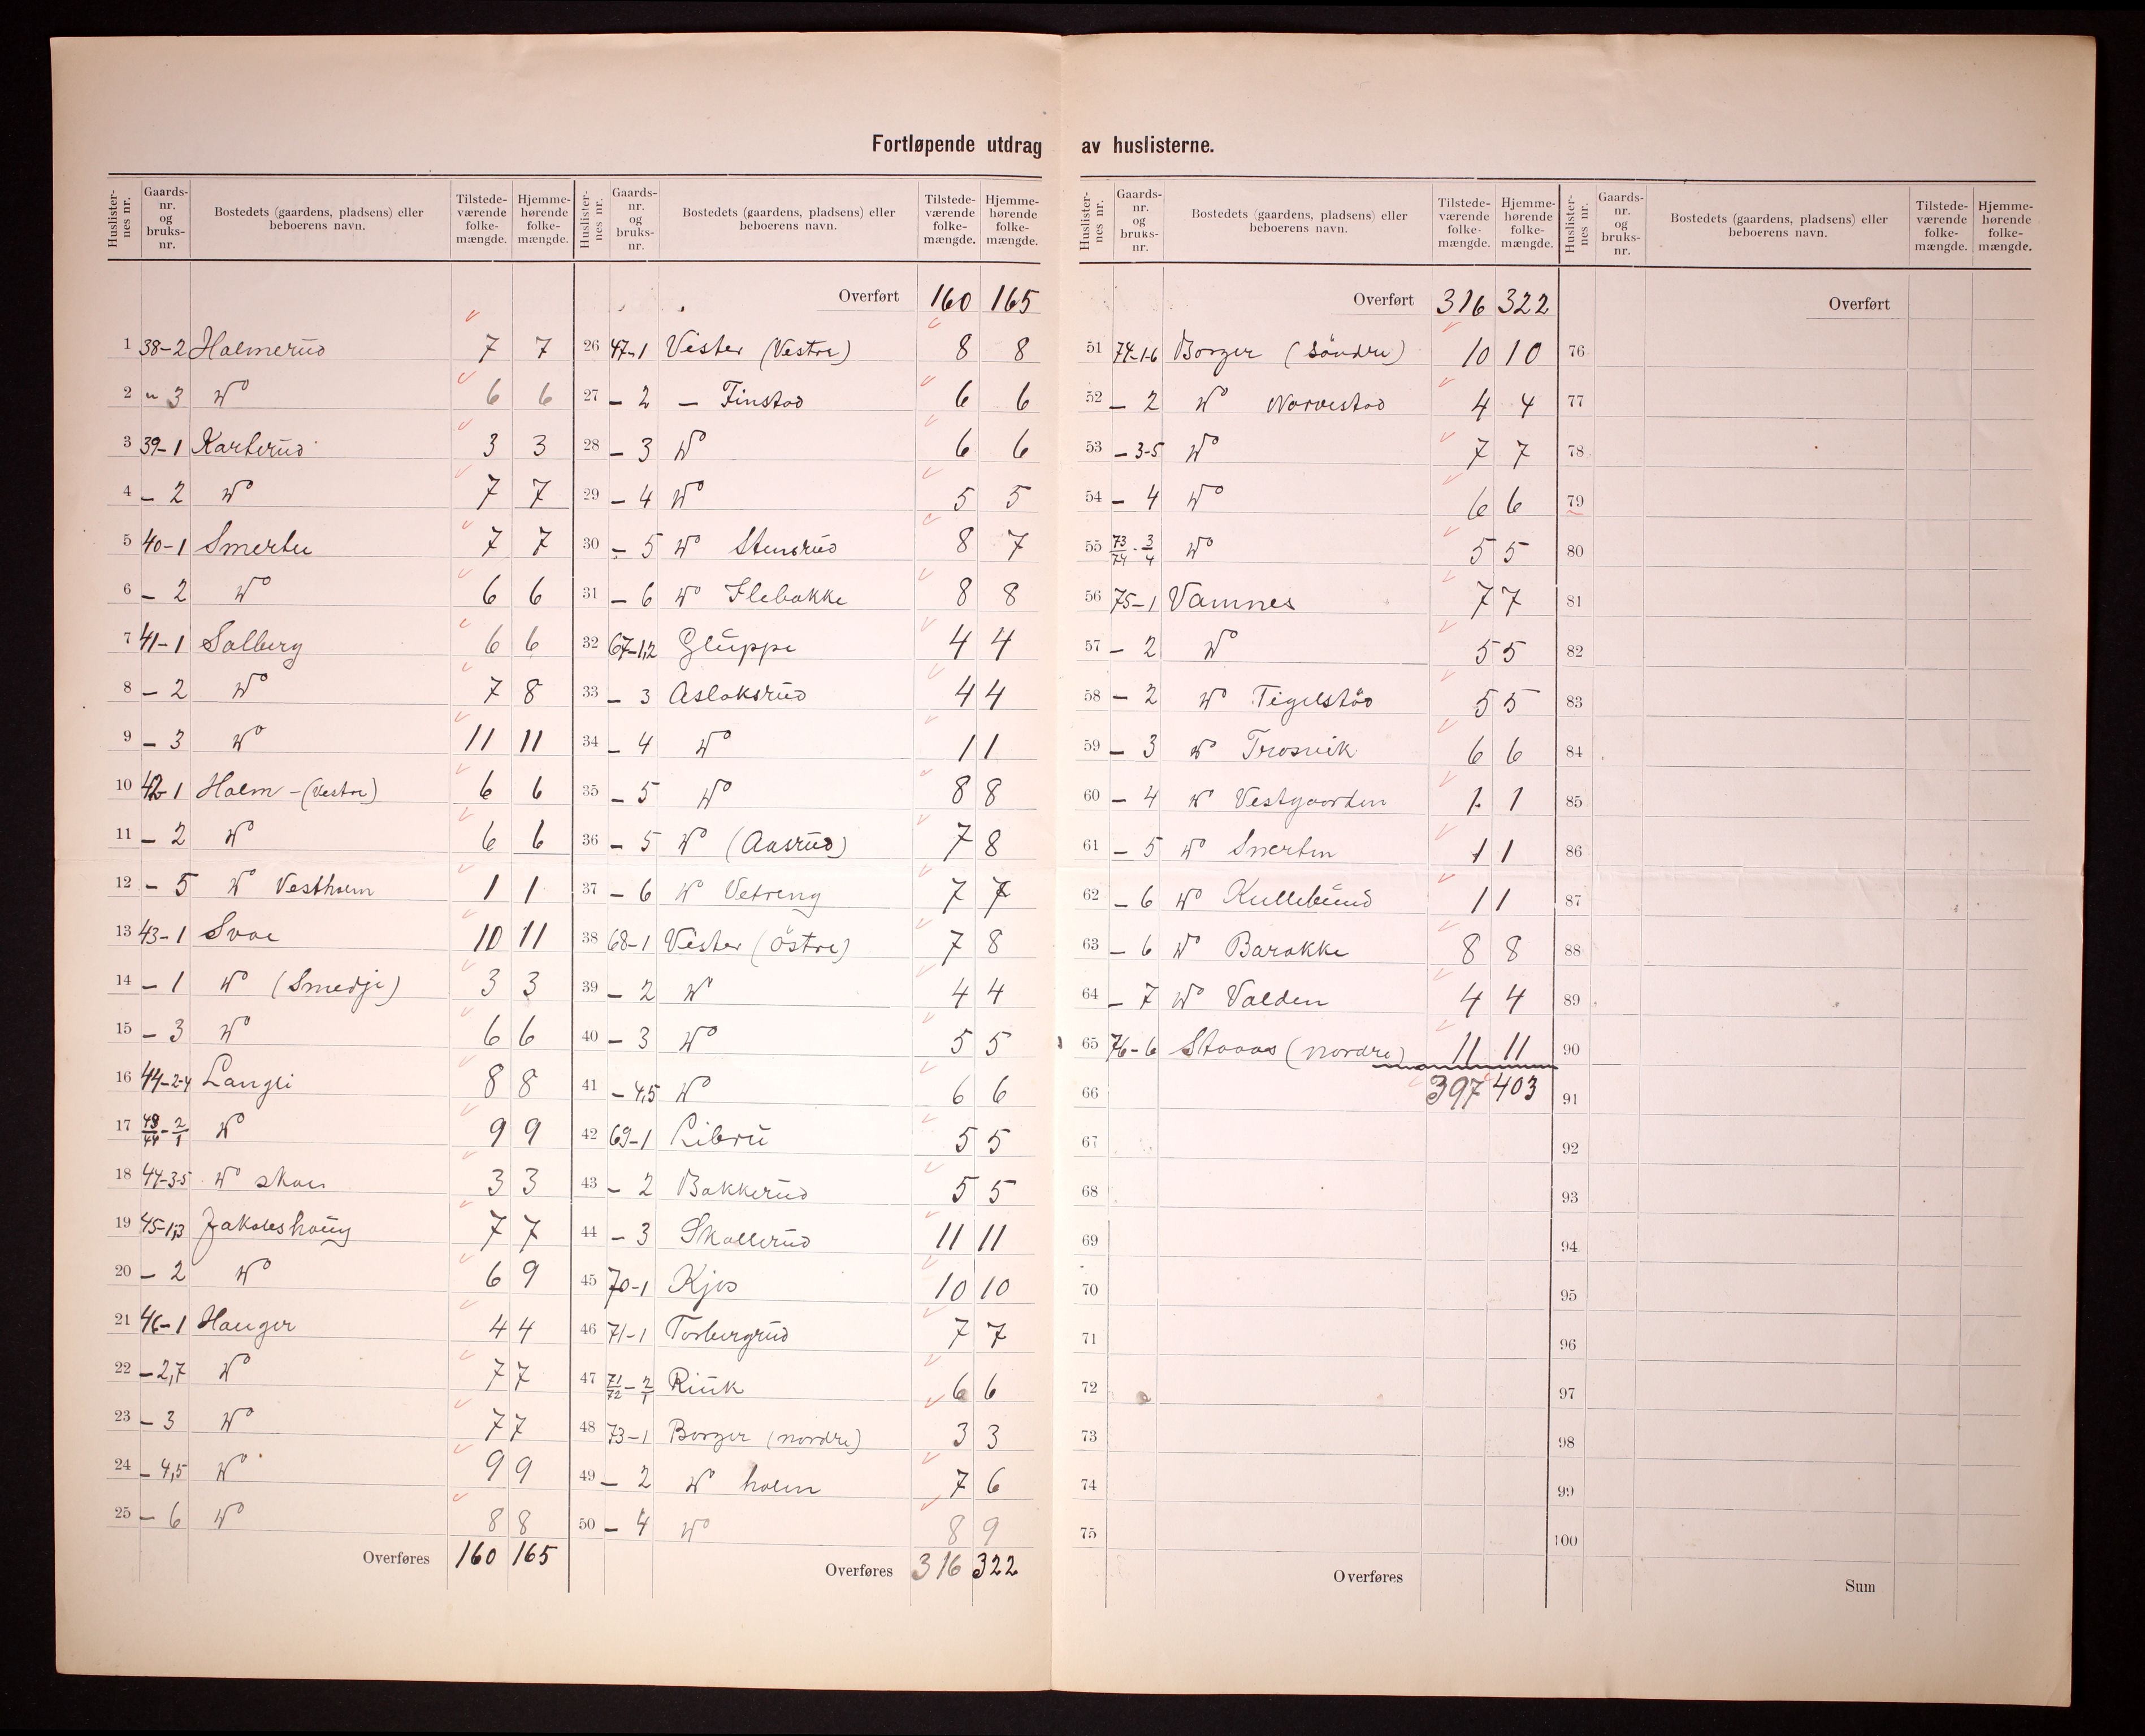 Fortløpende utdrag av huslisterne.
Huslisternes nr. Gaards-nr. og bruks-nr. Bostedets (gaardens, pladsens) eller beboerens navn. Tilstede-værende folke-mængde. Hjemme-hørende folke-mængde.
1 38-2 Holmerud 7 7
2 " 3 Do 6 6
3 39-1 Karterud 3 3
4 - 2 Do 7 7
5 40-1 Smertu 7 7
6 - 2 Do 6 6
7 41-1 Solberg 6 6
8 - 2 Do 7 8
9 - 3 Do 11 11
10 42-1 Holm - (Vestre) 6 6
11 - 2 Do 6 6
12 - 5 Do Vestholm 1 1
13 43-1 Svae 10 11
14 - 1 Do (Smedje) 3 3
15 - 3 Do 6 6
16 44-2-4 Langli 8 8
17 43/44 - 2/1 Do 9 9
18 44-3-5 Do skoen 3 3
19 45-1,3 Jakobshaug 7 7
20 - 2 Do 6 9
21 46-1 Hauger 4 4
22 - 2,7 Do 7 7
23 - 3 Do 7 7
24 - 4,5 Do 9 9
25 - 6 Do 8 8
Overføres 160 165
Huslisternes nr. Gaards-nr. og bruks-nr. Bostedets (gaardens, pladsens) eller beboerens navn. Tilstede-værende folke-mængde. Hjemme-hørende folke-mængde.
Overført 160 165
26 47-1 Vister (Vestre) 8 8
27 - 2 - Finstad 6 6
28 - 3 Do 6 6
29 - 4 Do 5 5
30 - 5 Do Stensrud 8 7
31 - 6 Do Flebakke 8 8
32 67-1,2 Gluppe 4 4
33 - 3 Aslaksrud 4 4
34 - 4 Do 1 1
35 - 5 Do 8 8
36 - 5 Do (Aasrud) 7 8
37 - 6 Do Vetreng 7 7
38 68-1 Vister (östre) 7 8
39 - 2 Do 4 4
40 - 3 Do 5 5
41 - 4,5 Do 6 6
42 69-1 Libru 5 5
43 - 2 Bakkerud 5 5
44 - 3 Skollerud 11 11
45 70-1 Kjos 10 10
46 71-1 Torbergrud 7 7
47 71/72 - 2/1 Riuk 6 6
48 73-1 Borger (nordre) 3 3
49 - 2 Do holm 7 6
50 - 4 Do 8 9
Overføres 316 322
Huslisternes nr. Gaards-nr. og bruks-nr. Bostedets (gaardens, pladsens) eller beboerens navn. Tilstede-værende folke-mængde. Hjemme-hørende folke-mængde.
Overført 316 322
51 74-1-6 Borger (söndre) 10 10
52 - 2 Do Norvestad 4 4
53 - 3-5 Do 7 7
54 - 4 Do 6 6
55 73/74 - 3/4 Do 5 5
56 75-1 Vamnes 7 7
57 - 2 Do 5 5
58 - 2 Do Tigelstad 5 5
59 - 3 Do Trosvik 6 6
60 - 4 Do Vestgaarden 1 1
61 - 5 Do Smertun 1 1
62 - 6 Do Kullebund 1 1
63 - 6 Do Barakke 8 8
64 - 7 Do Volden 4 4
65 76-6 Staaas (nordre) 11 11
66 397 403
67
68
69
70
71
72
73
74
75
Overføres
Huslisternes nr. Gaards-nr. og bruks-nr. Bostedets (gaardens, pladsens) eller beboerens navn. Tilstede-værende folke-mængde. Hjemme-hørende folke-mængde.
Overført
76
77
78
79
80
81
82
83
84
85
86
87
88
89
90
91
92
93
94
95
96
97
98
99
100
Sum